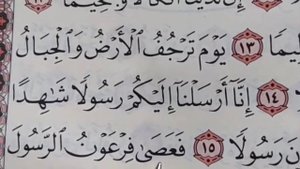 إِنَّ لَدَيْنَا أَنكَالًا وَجَحِيمًا ١٢
يمًا ١٣ يَوْمَ تَرْجُفُ ٱلْأَرْضُ وَٱلْجِبَالُ
١٤ إِنَّآ أَرْسَلْنَآ إِلَيْكُمْ رَسُولًا شَٰهِدًا
نَ رَسُولًا ١٥ فَعَصَىٰ فِرْعَوْنُ ٱلرَّسُولَ